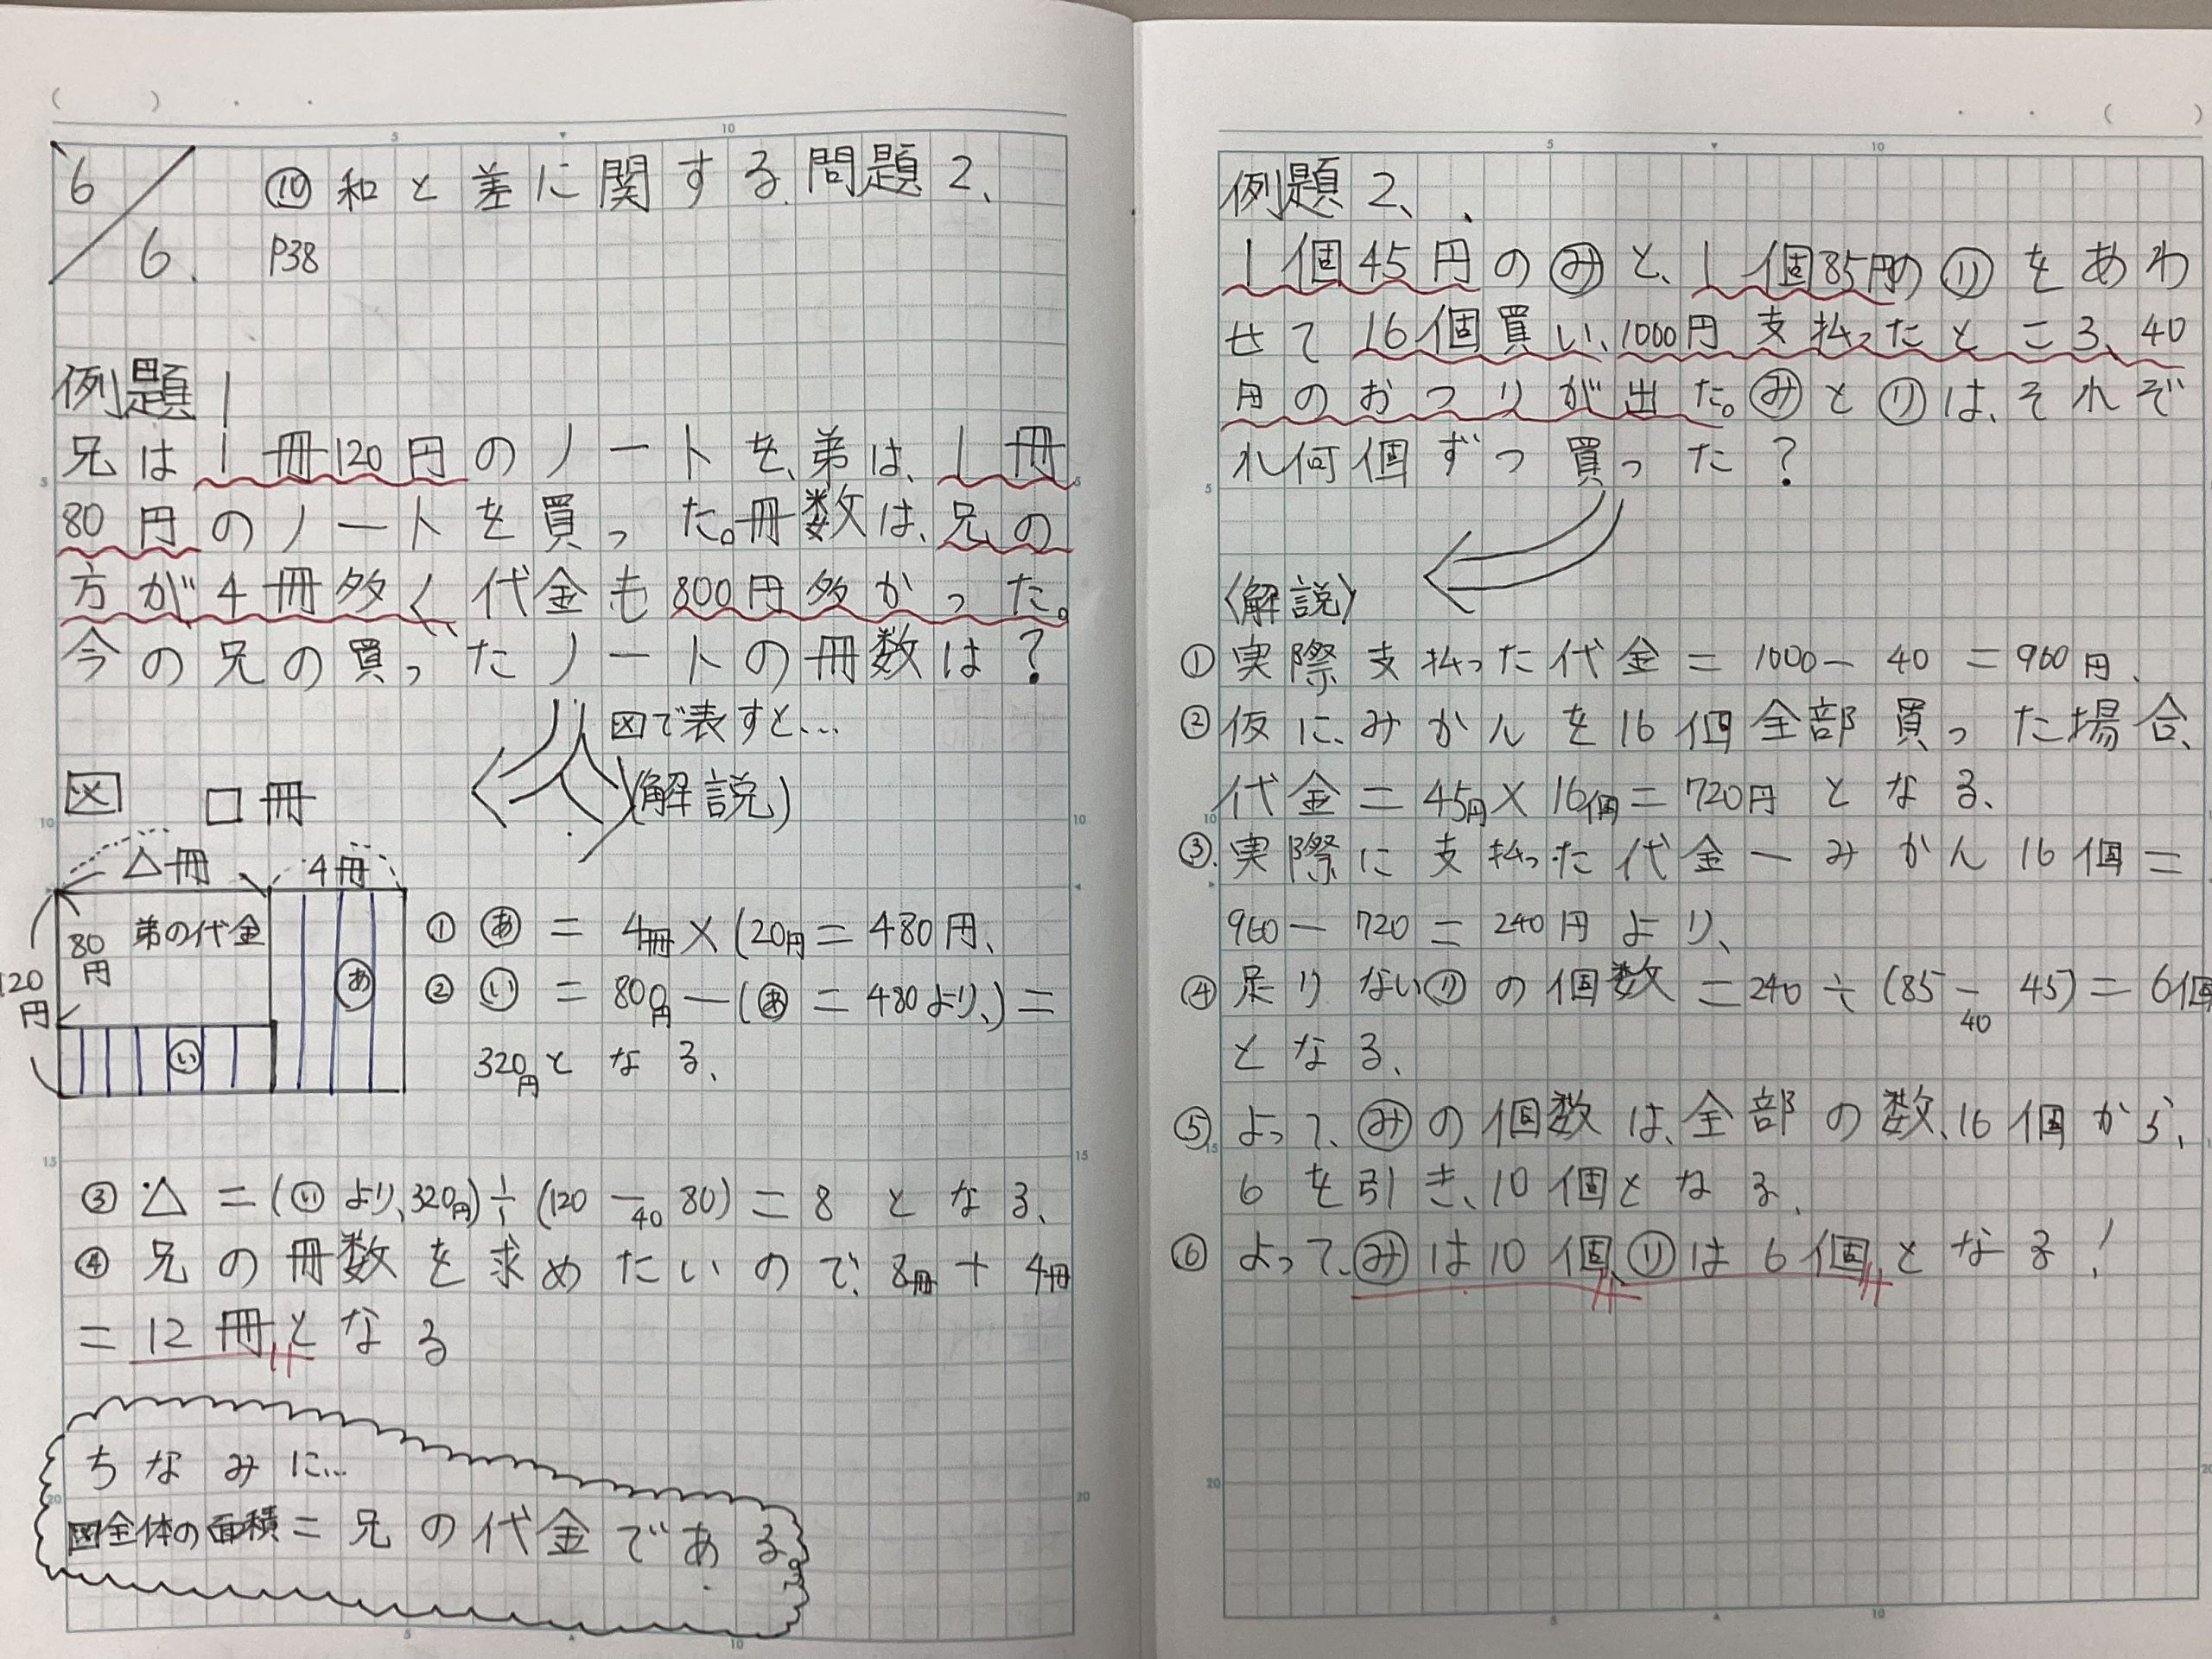 6/6.
⑩和と差に関する問題2、
P38
例題1
兄は1冊120円のノートを、弟は、1冊
80円のノートを買った。冊数は、兄の
方が4冊多く、代金も800円多かった。
今の兄の買ったノートの冊数は?
図で表すと…
(解説)
図 □冊
△冊 4冊
弟の代金
80円
120円
あ
い
① あ = 4冊×120円=480円、
② い = 800円-(あ=480より、)=
320円となる、
③ △=(いより、320円)÷(120-80)=8となる、
40
④ 兄の冊数を求めたいので、8冊+4冊
=12冊となる
ちなみに…
図全体の面積=兄の代金である。
5 10
5
10
15
20
例題2、
1個45円のみと、1個85円のリをあわ
せて16個買い、1000円支払ったところ、40
円のおつりが出た。みとリは、それぞ
れ何個ずつ買った?
〈解説〉
①実際支払った代金=1000-40=960円、
②仮に、みかんを16個全部買った場合、
代金=45円×16個=720円となる、
③実際に支払った代金-みかん16個=
960-720=240円より、
④足りないリの個数=240÷(85-45)=6個
40
となる、
⑤よって、みの個数は、全部の数、16個から、
6を引き、10個となる、
⑥よって、みは10個、リは6個となる!